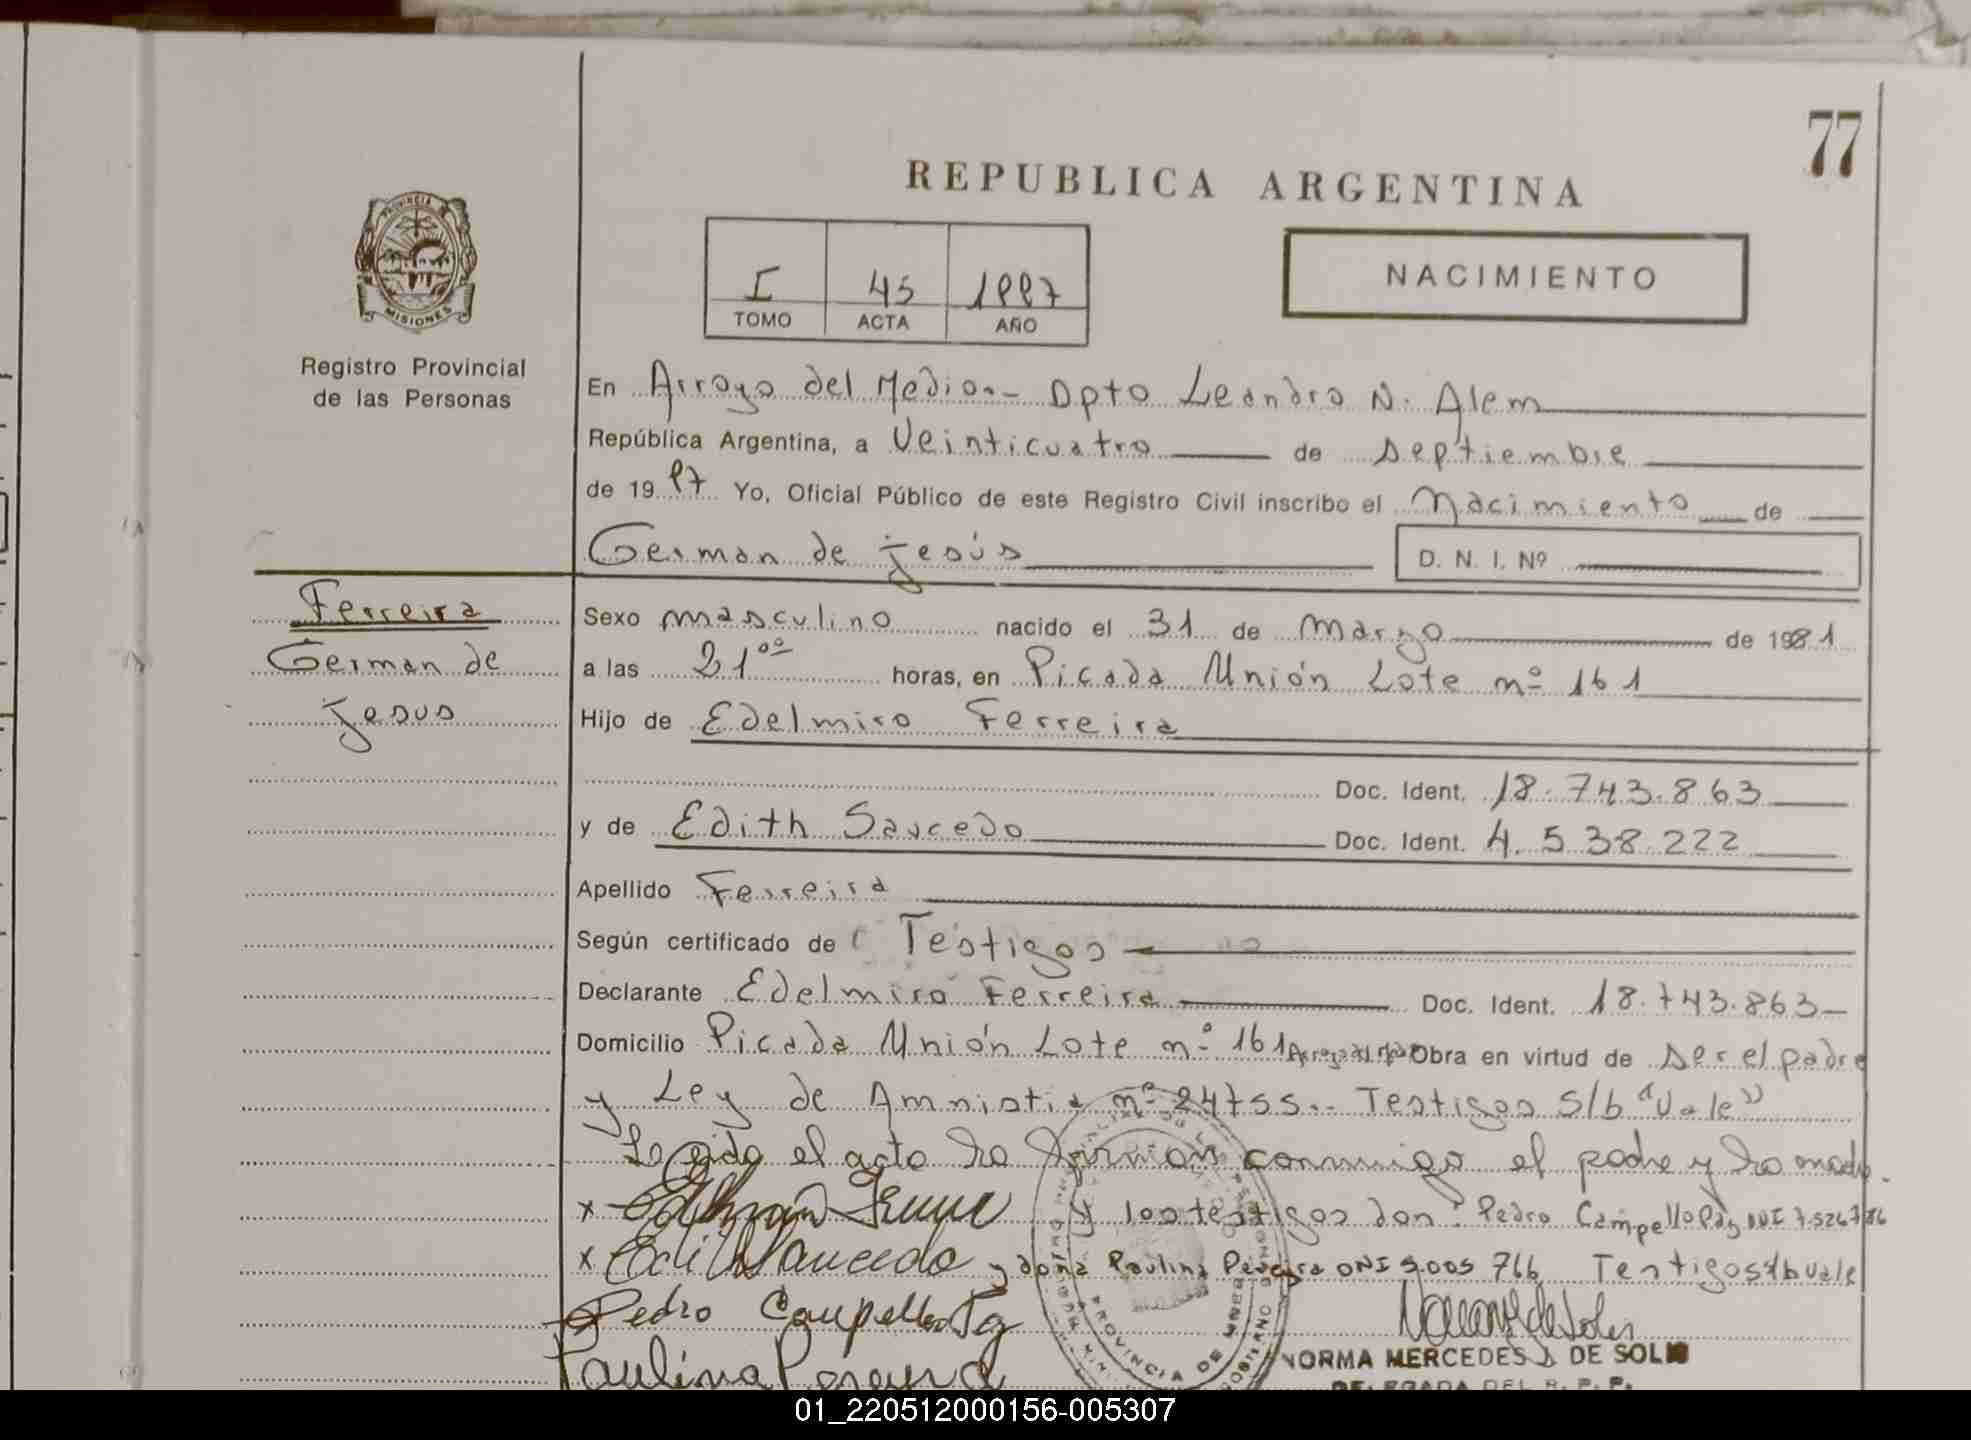 77
REPUBLICA ARGENTINA
I 45 1997
TOMO ACTA AÑO
NACIMIENTO
PROVINCIA
MISIONES
Registro Provincial
de las Personas
En Arroyo del Medio.- Dpto Leandro N. Alem
República Argentina, a Veinticuatro de Septiembre
de 1997 Yo, Oficial Público de este Registro Civil inscribo el Nacimiento de
German de Jesús D. N. I. Nº
Ferreira
German de
Jesus
Sexo masculino nacido el 31 de marzo de 1981
a las 21 ºº horas, en Picada Unión Lote nº 161
Hijo de Edelmiro Ferreira
Doc. Ident. 18.743.863
y de Edith Saucedo Doc. Ident. 4.538.222
Apellido Ferreira
Según certificado de Testigos
Declarante Edelmiro Ferreira Doc. Ident. 18.743.863
Domicilio Picada Unión Lote nº 161 Obra en virtud de ser el padre
y Ley de Amnistia nº 24755.- Testigos S/b "Vale"
Leida el acta la firman conmigo el padre y la madre
x
y los testigos don: Pedro Campello Paz DNI 7.526.786
x Edith Saucedo y doña Paulina Pereyra DNI 5.005 766 Testigos s/b vale
Pedro Campello Paz
Paulina
PROVINCIA DE
NORMA MERCEDES DE SOLIS
DELEGADA DEL R. P. P.
01_220512000156-005307